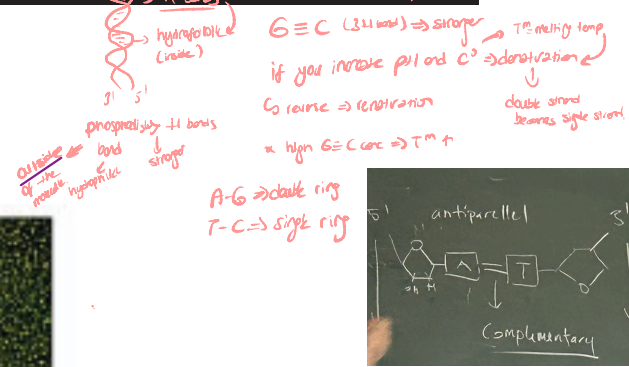 hydrofobik
(inside)
3' 5'
phosphodiester H bonds
bond
stronger
outside
of the
molecule
hydrophilic
G≡C (3H bond) ⇒ stronger
Tᵐ=melting temp
if you increase pH and C° ⇒ denatration
↳ reverse ⇒ renatration
double strand
becomes single strand
* high G≡C conc ⇒ Tᵐ ↑
A-G ⇒ double ring
T-C ⇒ single ring
5' antiparallel 3'
H
A = T
OH H
O
Complementary